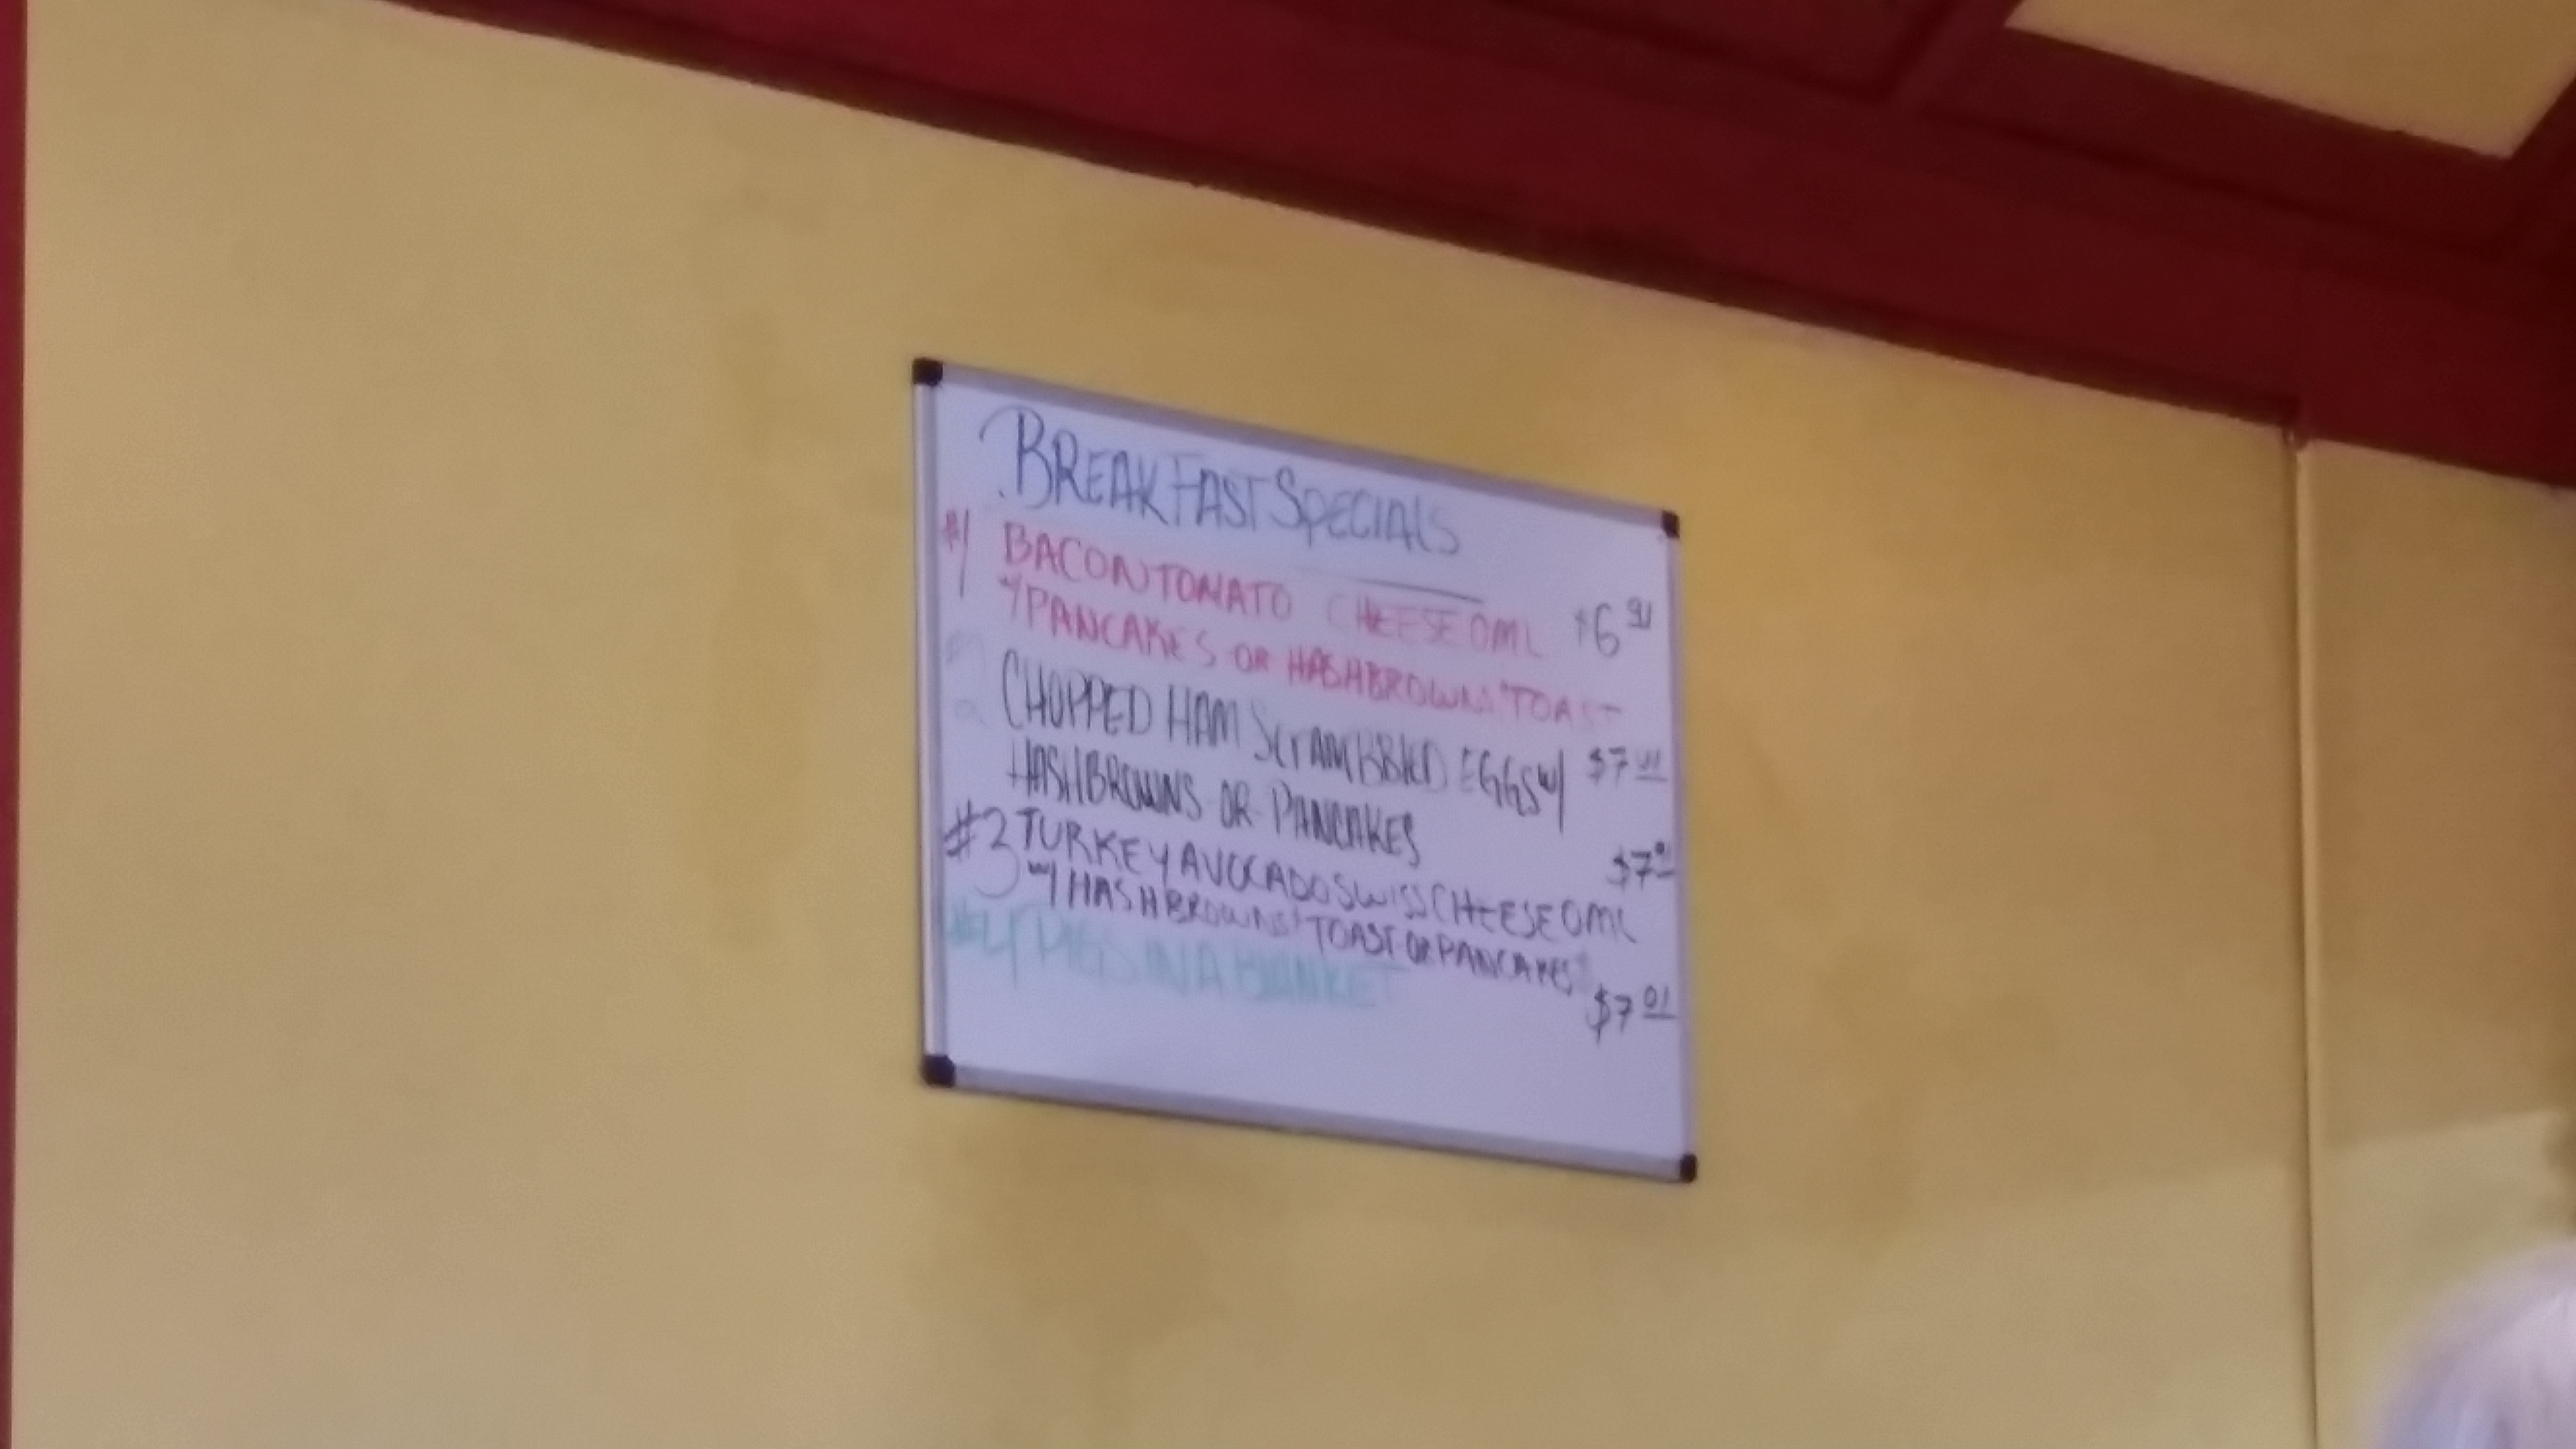 BREAKFAST SPECIALS
#1 BACON TOMATO CHEESE OML $6 91
w/ PANCAKES OR HASHBROWNS TOAST
CHOPPED HAM SCRAMBBLED EGGS w/ $7
HASHBROWNS OR PANCAKES
#3 TURKEY AVOCADO SWISS CHEESE OML $7
w/ HASHBROWNS TOAST OR PANCAKES
#4 PIGS IN A BLANKET $7 01